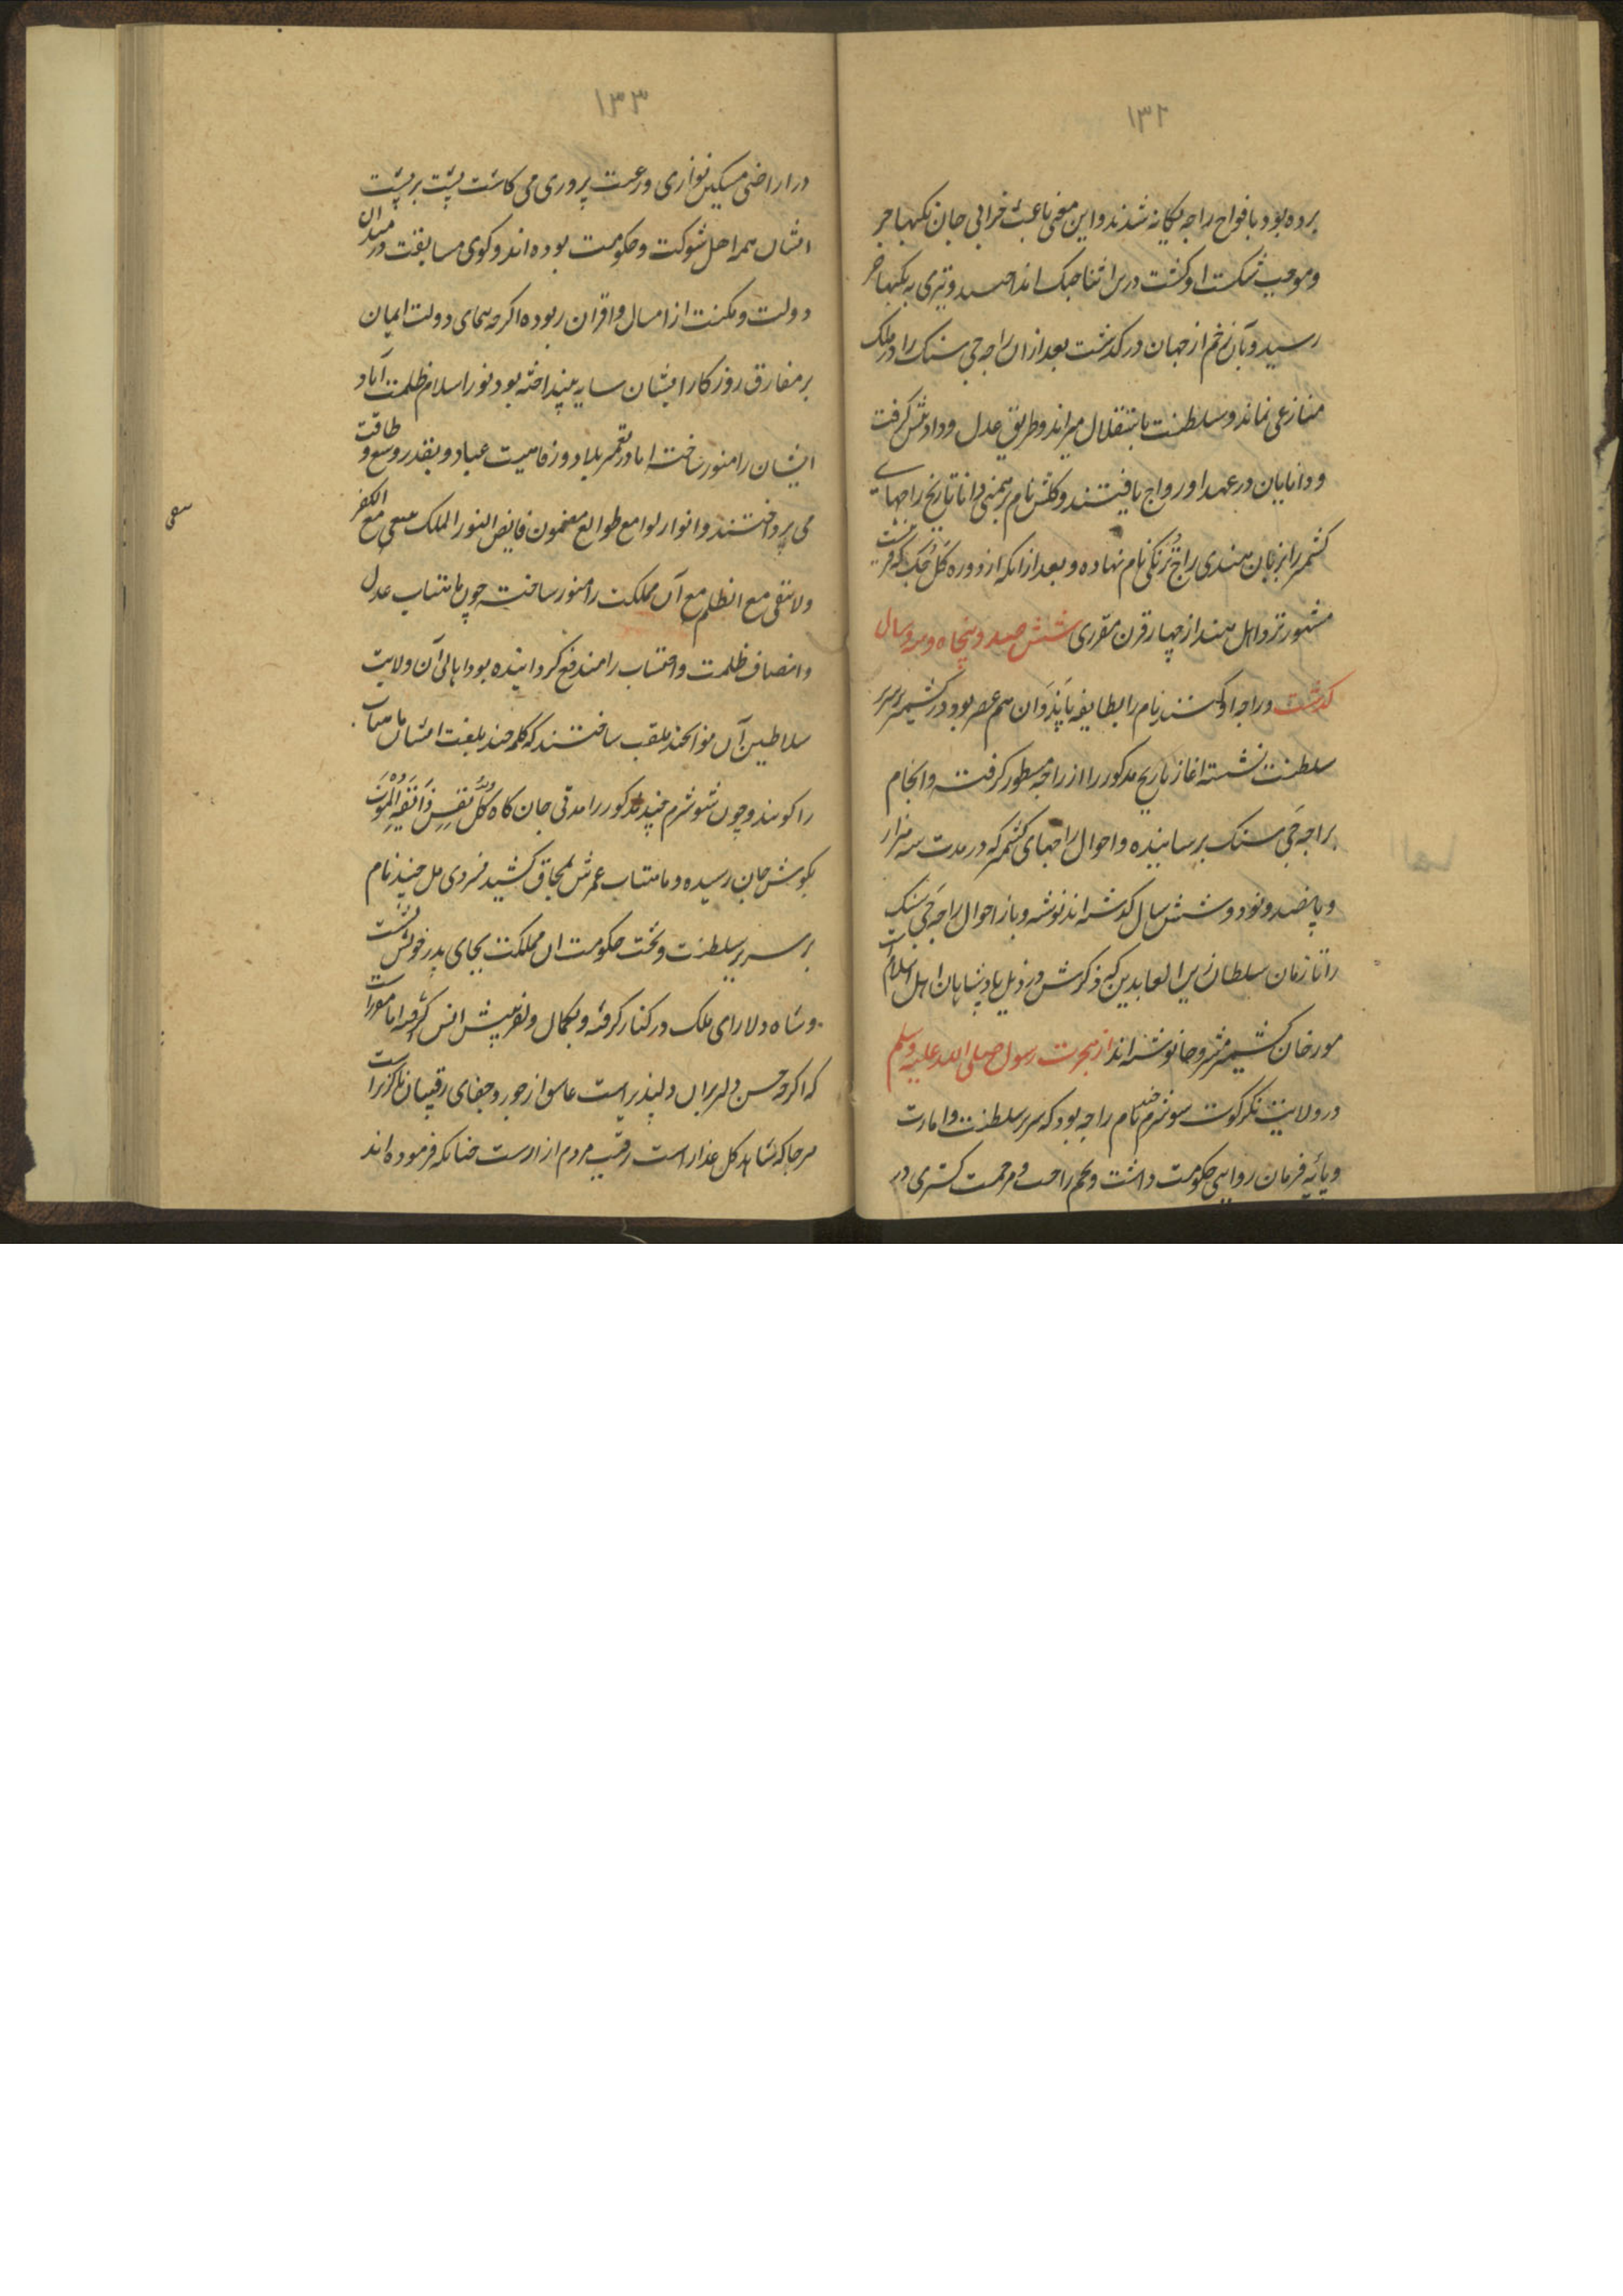 ۱۳۲
برده بود بافواج راجه یکانه شدند و این معنی باعث خرابی جان نکهباجر
و موجب شکست او کشت درین اثنا جنک انداختند و تیری به نکهباجر
رسید و بآن زخم از جهان در کذشت بعد از ان راجه جی سنک را در ملک
منازعی نماند و سلطنت باستقلال میراند و طریق عدل و داد پیش کرفت
و دانایان در عهد او رواج یافتند و کلش نام برهمنی دانا تاریخ راجهای
کشمیر را بزبان هندی راج ترنکی نام نهاده و بعد از انکه از دوره کل جک که قرنیست
مشهور نزد اهل هند از چهار قرن مقرری شش صد و پنجاه و سه سال
کذشت و راجه اوکنند نام را بطایفه پاندوان هم عصر بود در کشمیر بر سریر
سلطنت نشسته اغاز تاریخ مذکور را از راجه مسطور کرفته و انجام
براجه جی سنک برسانیده و احوال راجهای کشمیر که در مدت سه هزار
و پانصد و نود و شش سال کذشته اند نوشته و باز احوال راجه جی سنک
را تا زمان سلطان زین العابدین که ذکرش در ذیل پادشاهان اهل اسلام است
مورخان کشمیر مشروحا نوشته اند از هجرت رسول صلی الله علیه وسلم
در ولایت نکرکوت سوشرم چند نام راجه بود که سریر سلطنت و امارت
و پایه فرمان روایی حکومت داشت و تخم راحت و مرحمت کستری در
۱۳۳
در اراضی مسکین نوازی و رعیت پروری می کاشت پشت بر پشت
ایشان همه اهل شوکت و حکومت بوده اند و کوی مسابقت در میدان
دولت و مکنت از امسال و اقران ربوده اکرچه همای دولت ایمان
بر مفارق روزکار ایشان سایه نینداخته بود و نور اسلام ظلمت آباد
ایشان را منور نساخته اما در تعمیر بلاد و رفاهیت عباد و بقدر وسع و طاقت
می پرداختند و انوار لوامع طوالع مضمون فایض النور الملک یبقی مع الکفر
ولا یبقی مع الظلم مع آن مملکت را منور ساخته چون ماهتاب عدل
و انصاف ظلمت و اعتساب را مندفع کردانیده بود اهالی آن ولایت
سلاطین آن مواکند ملقب ساختند که کلمه چند بلغت ایشان ماهتاب
را کویند و چون شوشرم چند مذکور را مدتی جان کاه کل نفس ذائقة الموت
بکوش جان رسیده و ماهتاب عمرش بمحاق کشید فرودی مل چند نام
بر سریر سلطنت و تخت حکومت ان مملکت بجای پدر خویش نشست
و شاه دلارای ملک در کنار کرفته و بکمال و لفریبیش انس کرفته اما مقررست
که اکرچه حسن دلبران دلپذیر است عاشق از جور و جفای رقیبان ناکزیر است
هر جا که شاهد کل عذار است رقیب مردم ازارست چنانکه فرموده اند
سعی